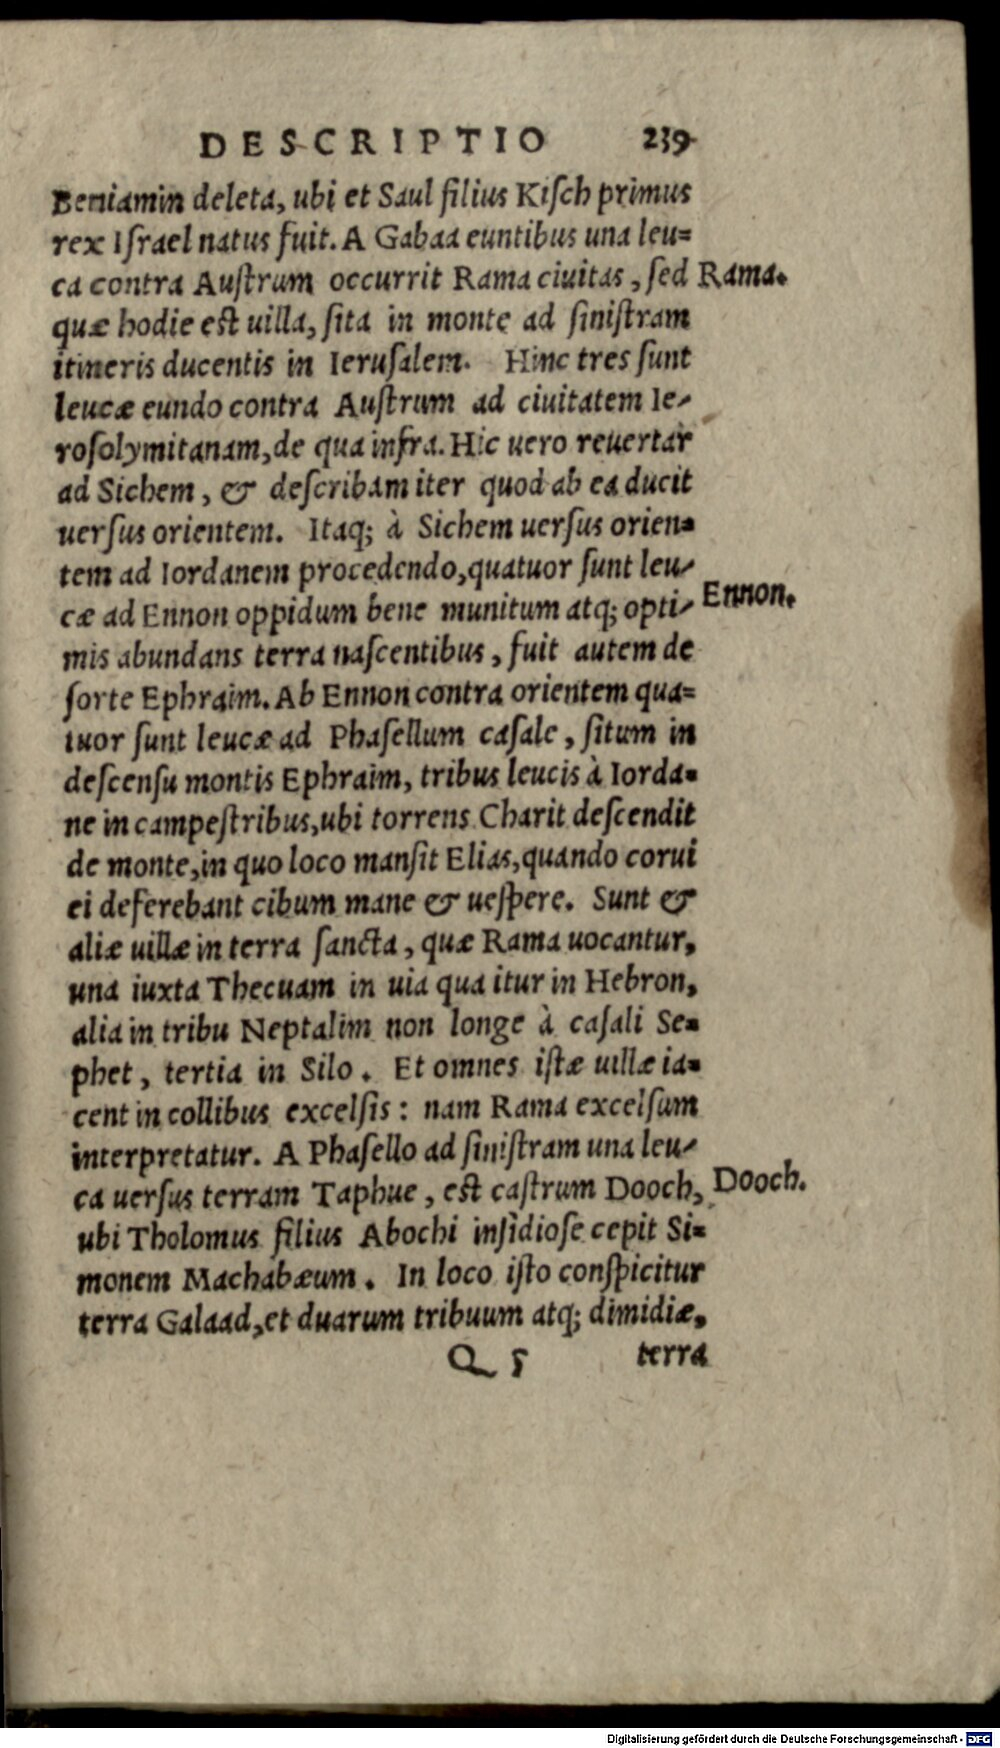 DESCRIPTIO 239
Beniamin deleta, ubi et Saul filius Kisch primus
rex Israel natus fuit. A Gabaa euntibus una leu=
ca contra Austrum occurrit Rama ciuitas, sed Rama.
quæ hodie est uilla, sita in monte ad sinistram
itineris ducentis in Ierusalem. Hinc tres sunt
leucæ eundo contra Austrum ad ciuitatem Ie-
rosolymitanam, de qua infra. Hic uero reuertar
ad Sichem, & describam iter quod ab ea ducit
uersus orientem. Itaq; à Sichem uersus orien=
tem ad Iordanem procedendo, quatuor sunt leu-
cæ ad Ennon oppidum bene munitum atq; opti- Ennon.
mis abundans terra nascentibus, fuit autem de
sorte Ephraim. Ab Ennon contra orientem qua=
tuor sunt leucæ ad Phasellum casale, situm in
descensu montis Ephraim, tribus leucis à Iorda=
ne in campestribus, ubi torrens Charit descendit
de monte, in quo loco mansit Elias, quando corui
ei deferebant cibum mane & uespere. Sunt &
aliæ uillæ in terra sancta, quæ Rama uocantur,
una iuxta Thecuam in uia qua itur in Hebron,
alia in tribu Neptalim non longe à casali Se=
phet, tertia in Silo. Et omnes istæ uillæ ia=
cent in collibus excelsis: nam Rama excelsum
interpretatur. A Phasello ad sinistram una leu-
ca uersus terram Taphue, est castrum Dooch, Dooch.
ubi Tholomus filius Abochi insidiose cepit Si=
monem Machabæum. In loco isto conspicitur
terra Galaad, et duarum tribuum atq; dimidiæ,
Q 5 terra
Digitalisierung gefördert durch die Deutsche Forschungsgemeinschaft - DFG